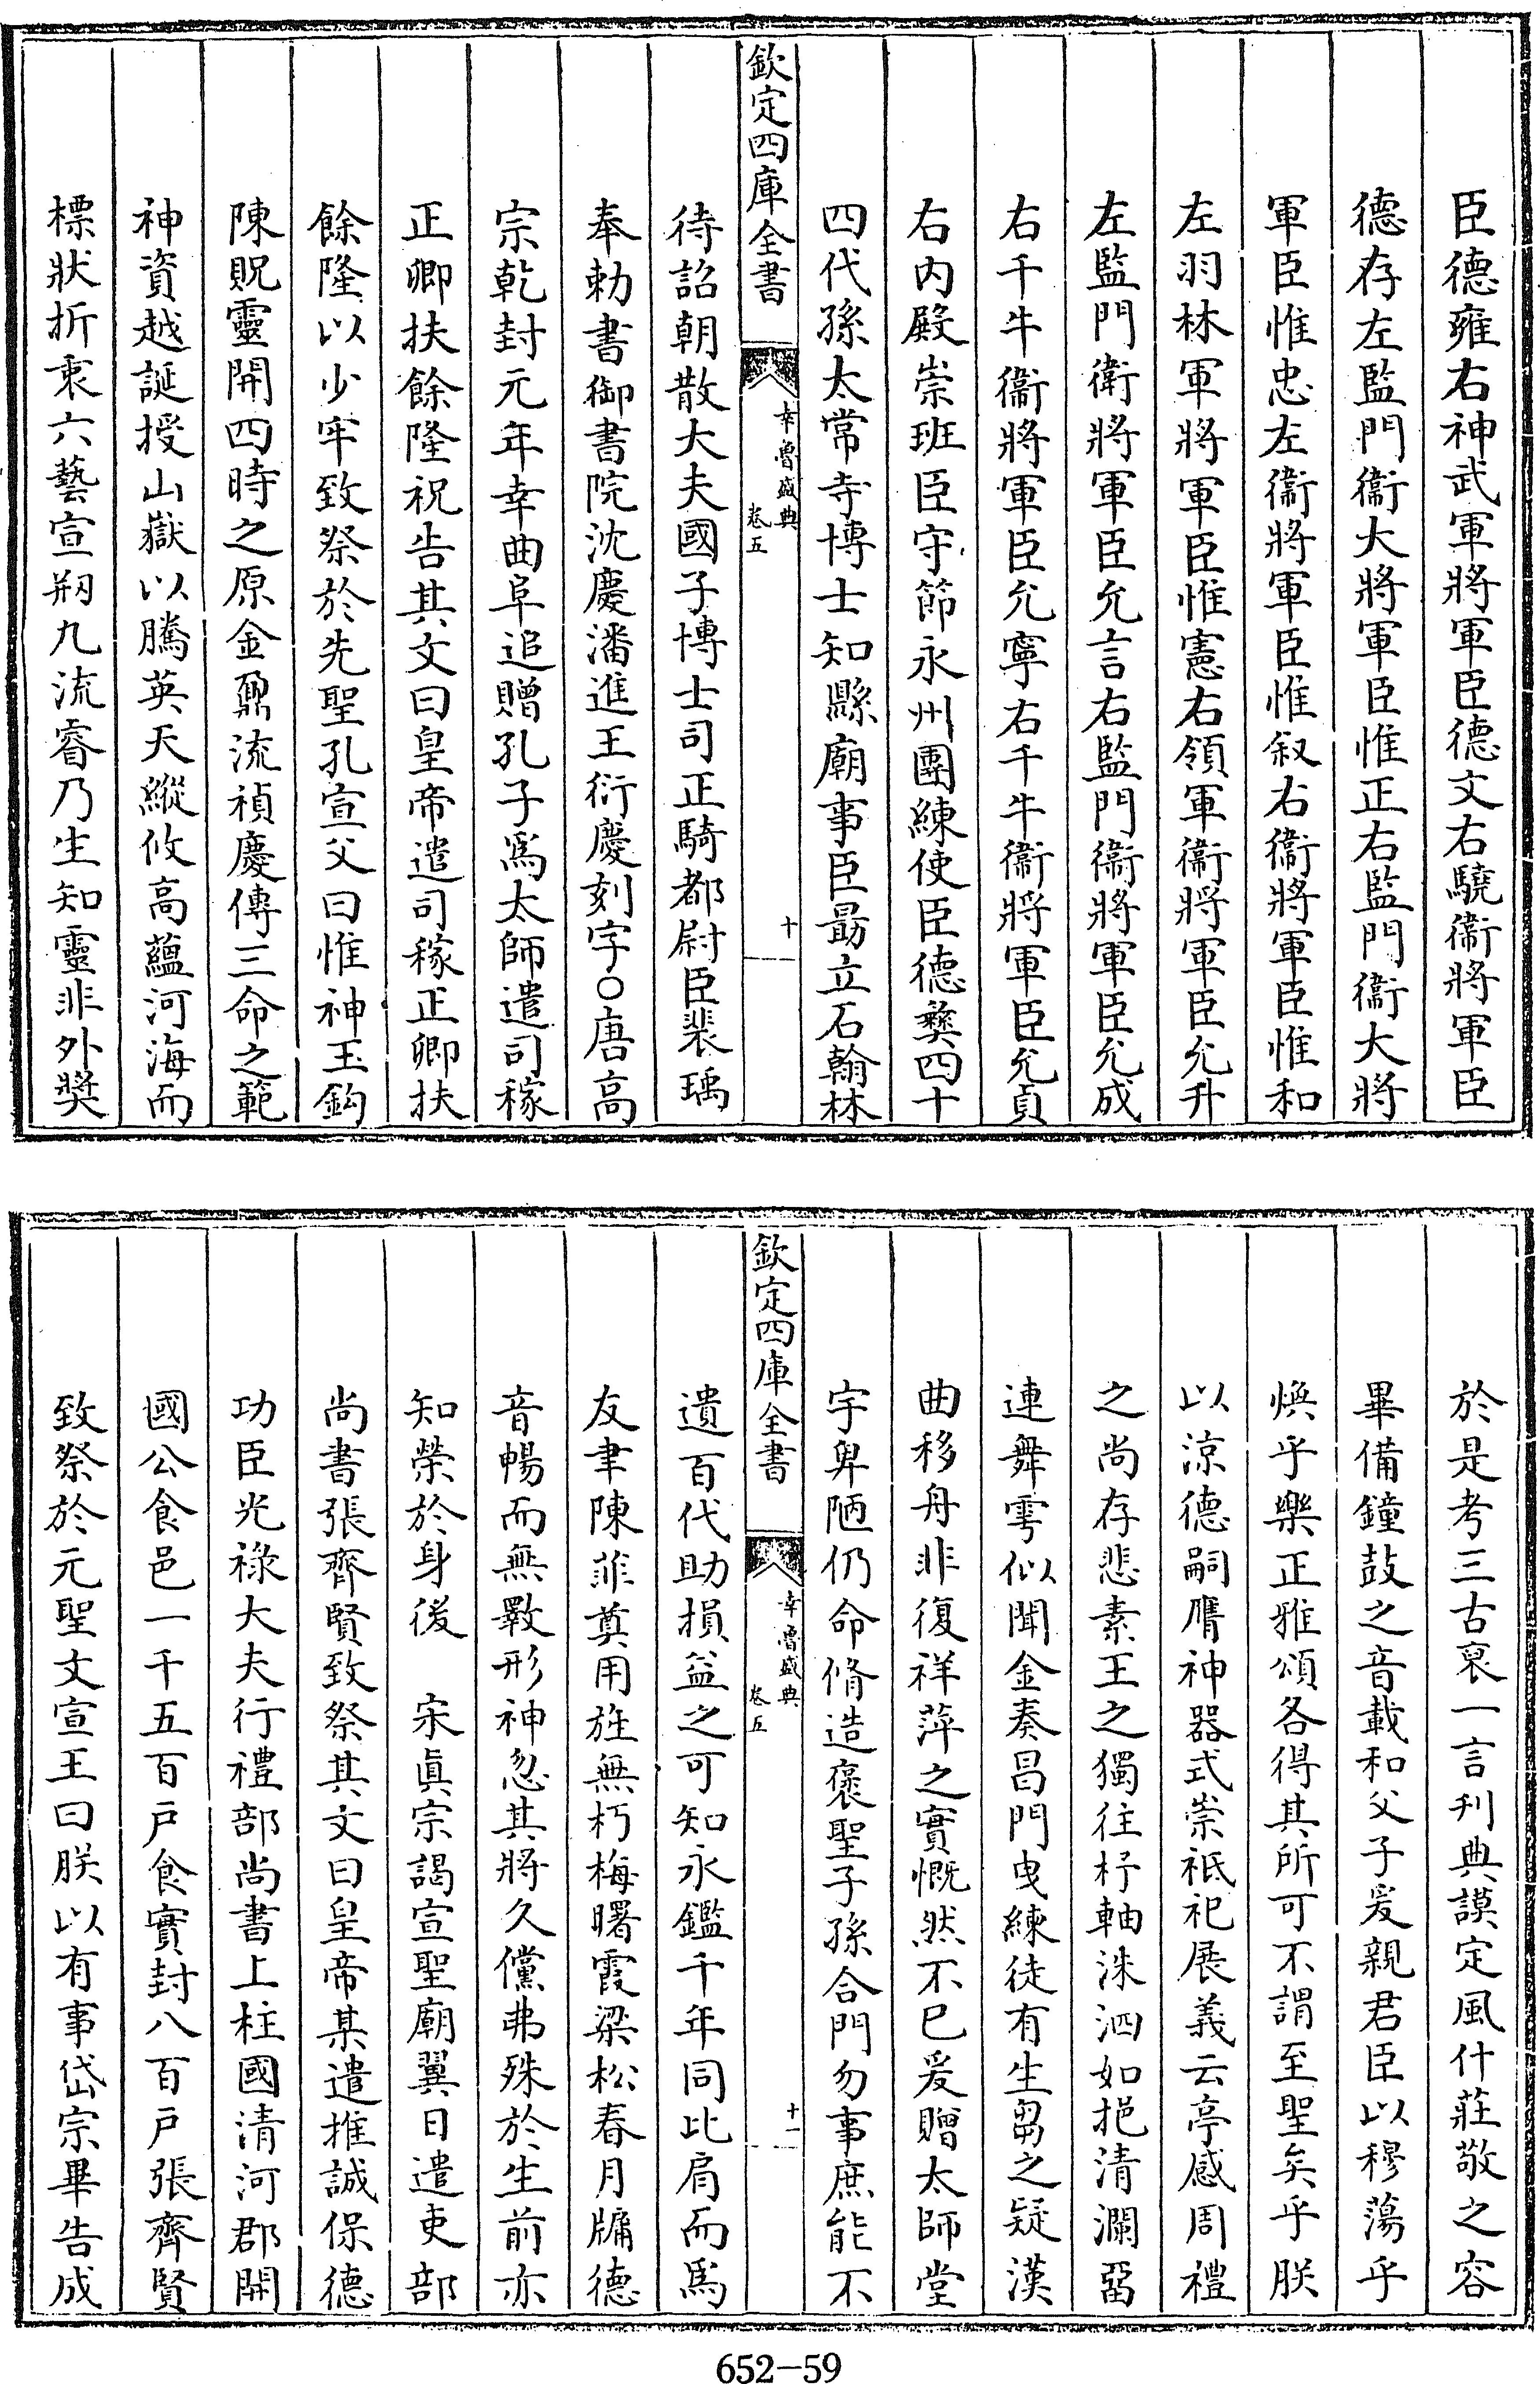 臣德雍右神武軍將軍臣德文右驍衞將軍臣
德存左監門衞大將軍臣惟正右監門衞大將
軍臣惟忠左衞將軍臣惟叙右衞將軍臣惟和
左羽林軍將軍臣惟憲右領軍衞將軍臣允升
左監門衛將軍臣允言右監門衞將軍臣允成
右千牛衞將軍臣允寧右千牛衞將軍臣允貞
右内殿崇班臣守節永州團練使臣德彝四十
四代孫太常寺博士知縣廟事臣勗立石翰林
欽定四庫全書
幸魯盛典
卷五
十
待詔朝散大夫國子博士司正騎都尉臣裴瑀
奉勅書御書院沈慶潘進王衍慶刻字○唐高
宗乾封元年幸曲阜追贈孔子爲太師遣司稼
正卿扶餘隆祝告其文曰皇帝遣司稼正卿扶
餘隆以少牢致祭於先聖孔宣父曰惟神玉鈎
陳貺靈開四時之原金鼐流禎慶傳三命之範
神資越誕授山嶽以騰英天縱攸高蘊河海而
標狀折衷六藝宣剏九流睿乃生知靈非外獎
於是考三古裒一言刋典謨定風什莊敬之容
畢備鐘鼓之音載和父子爰親君臣以穆蕩乎
煥乎樂正雅頌各得其所可不謂至聖矣乎朕
以涼德嗣膺神器式崇祗祀展義云亭感周禮
之尚存悲素王之獨往杼軸洙泗如挹清瀾罶
連舞雩似聞金奏昌門曳練徒有生芻之疑漢
曲移舟非復祥萍之實慨然不已爰贈太師堂
宇卑陋仍命脩造褒聖子孫合門勿事庶能不
欽定四庫全書
幸魯盛典
卷五
十一
遺百代助損益之可知永鑑千年同比肩而爲
友聿陳菲奠用旌無朽梅曙霞梁松春月牖德
音暢而無斁形神忽其將久儻弗殊於生前亦
知榮於身後 宋眞宗謁宣聖廟翼日遣吏部
尚書張齊賢致祭其文曰皇帝某遣推誠保德
功臣光祿大夫行禮部尚書上柱國清河郡開
國公食邑一千五百戸食實封八百戸張齊賢
致祭於元聖文宣王曰朕以有事岱宗畢告成
652-59